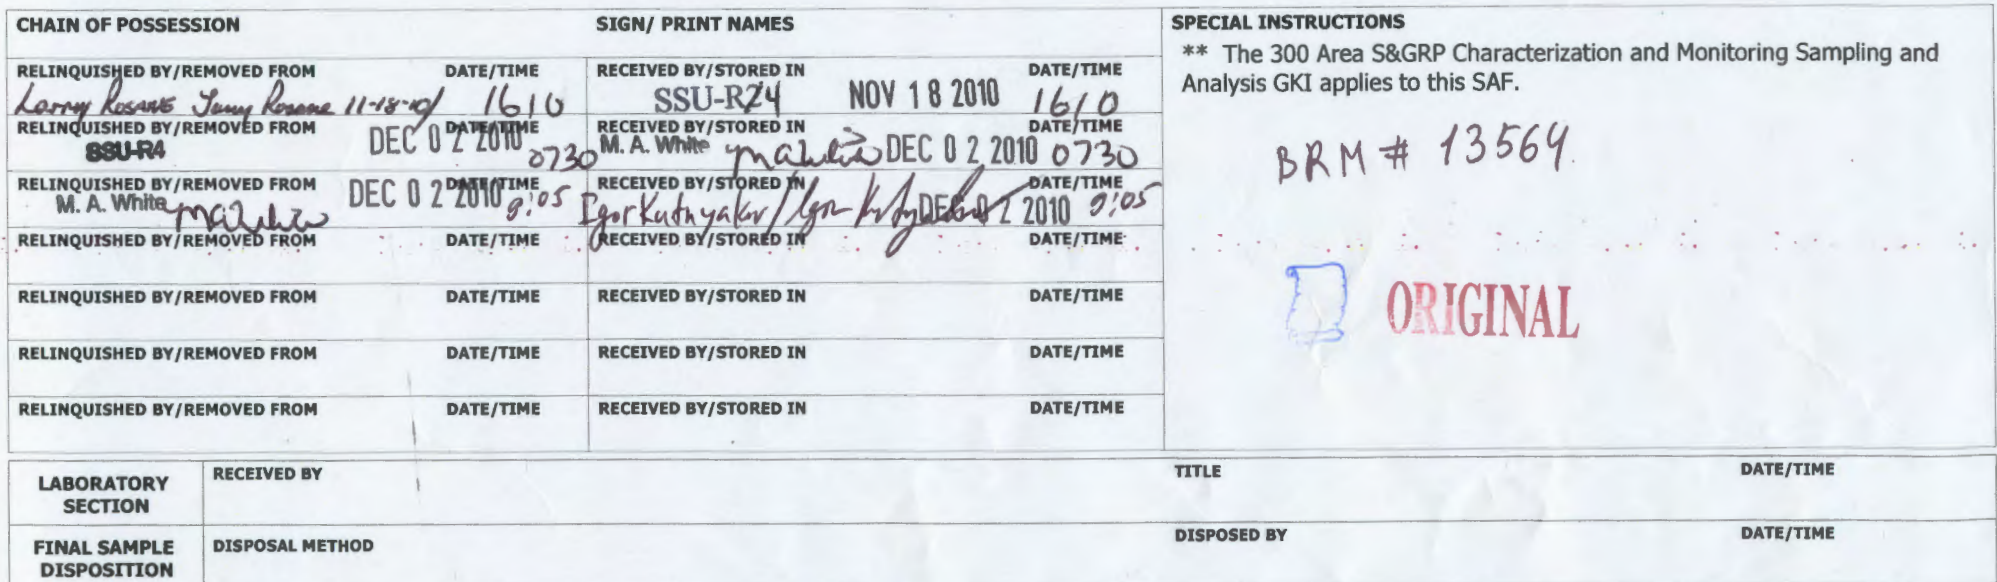 CHAIN OF POSSESSION SIGN/ PRINT NAMES
RELINQUISHED BY/REMOVED FROM DATE/TIME RECEIVED BY/STORED IN DATE/TIME
Larry Rosane 11-18-10/ 1610 SSU-R4 NOV 18 2010 1610
RELINQUISHED BY/REMOVED FROM DATE/TIME RECEIVED BY/STORED IN DATE/TIME
SSU-R4 DEC 02 2010 0730 M. A. White DEC 02 2010 0730
RELINQUISHED BY/REMOVED FROM DATE/TIME RECEIVED BY/STORED IN DATE/TIME
M. A. White DEC 02 2010 9:05 Igor Kutnyakov / DEC 02 2010 9:05
RELINQUISHED BY/REMOVED FROM DATE/TIME RECEIVED BY/STORED IN DATE/TIME
RELINQUISHED BY/REMOVED FROM DATE/TIME RECEIVED BY/STORED IN DATE/TIME
RELINQUISHED BY/REMOVED FROM DATE/TIME RECEIVED BY/STORED IN DATE/TIME
RELINQUISHED BY/REMOVED FROM DATE/TIME RECEIVED BY/STORED IN DATE/TIME
SPECIAL INSTRUCTIONS
** The 300 Area S&GRP Characterization and Monitoring Sampling and
Analysis GKI applies to this SAF.
BRM # 13564
ORIGINAL
LABORATORY
SECTION
RECEIVED BY TITLE DATE/TIME
FINAL SAMPLE
DISPOSITION
DISPOSAL METHOD DISPOSED BY DATE/TIME